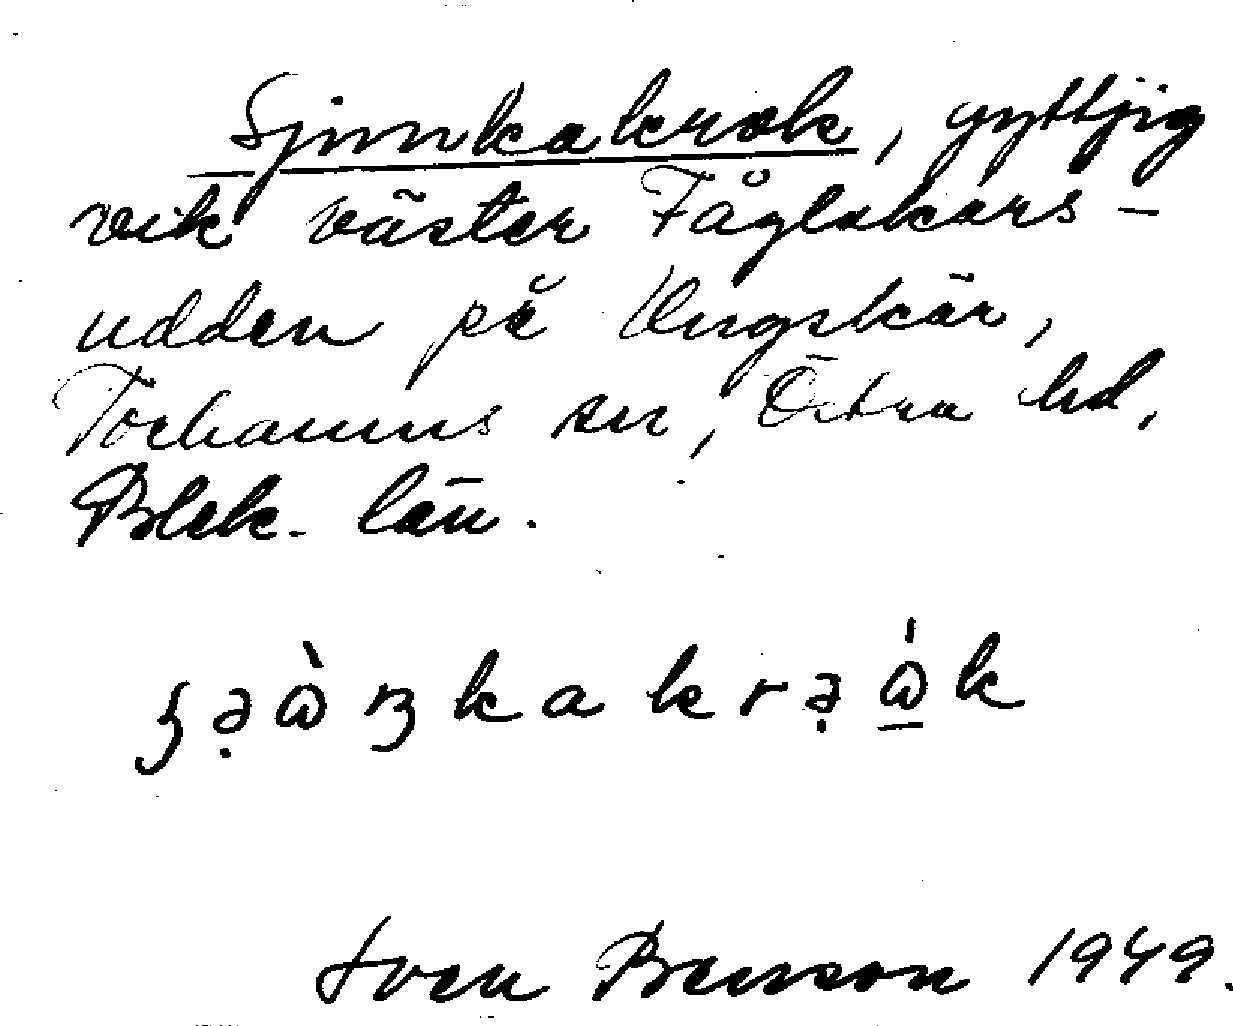 Sjunkakrok, gyttjig
vik väster Fågelskärs-
udden på Ungskär,
Torhamns sn, Östra hd,
Blek. län.
Sven Benson 1949.